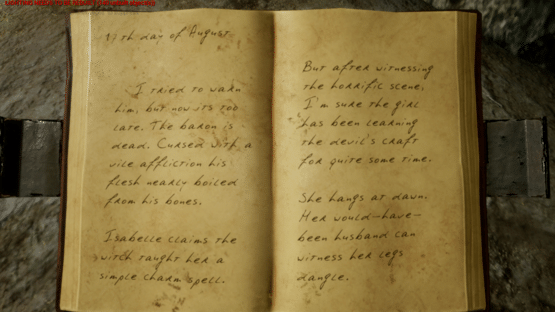 LIGHTING NEEDS TO BE REBUILT
day of August
I tried to warn
him, but now its too
late. The baron is
dead. Cursed with a
vile affliction his
flesh nearly boiled
from his bones.
Isabelle claims the
witch taught her a
simple charm spell.
But after witnessing
the horrific scene,
I'm sure the girl
has been learning
the devil's craft
for quite some time.
She hangs at dawn.
Her would-have-
been husband can
witness her legs
dangle.